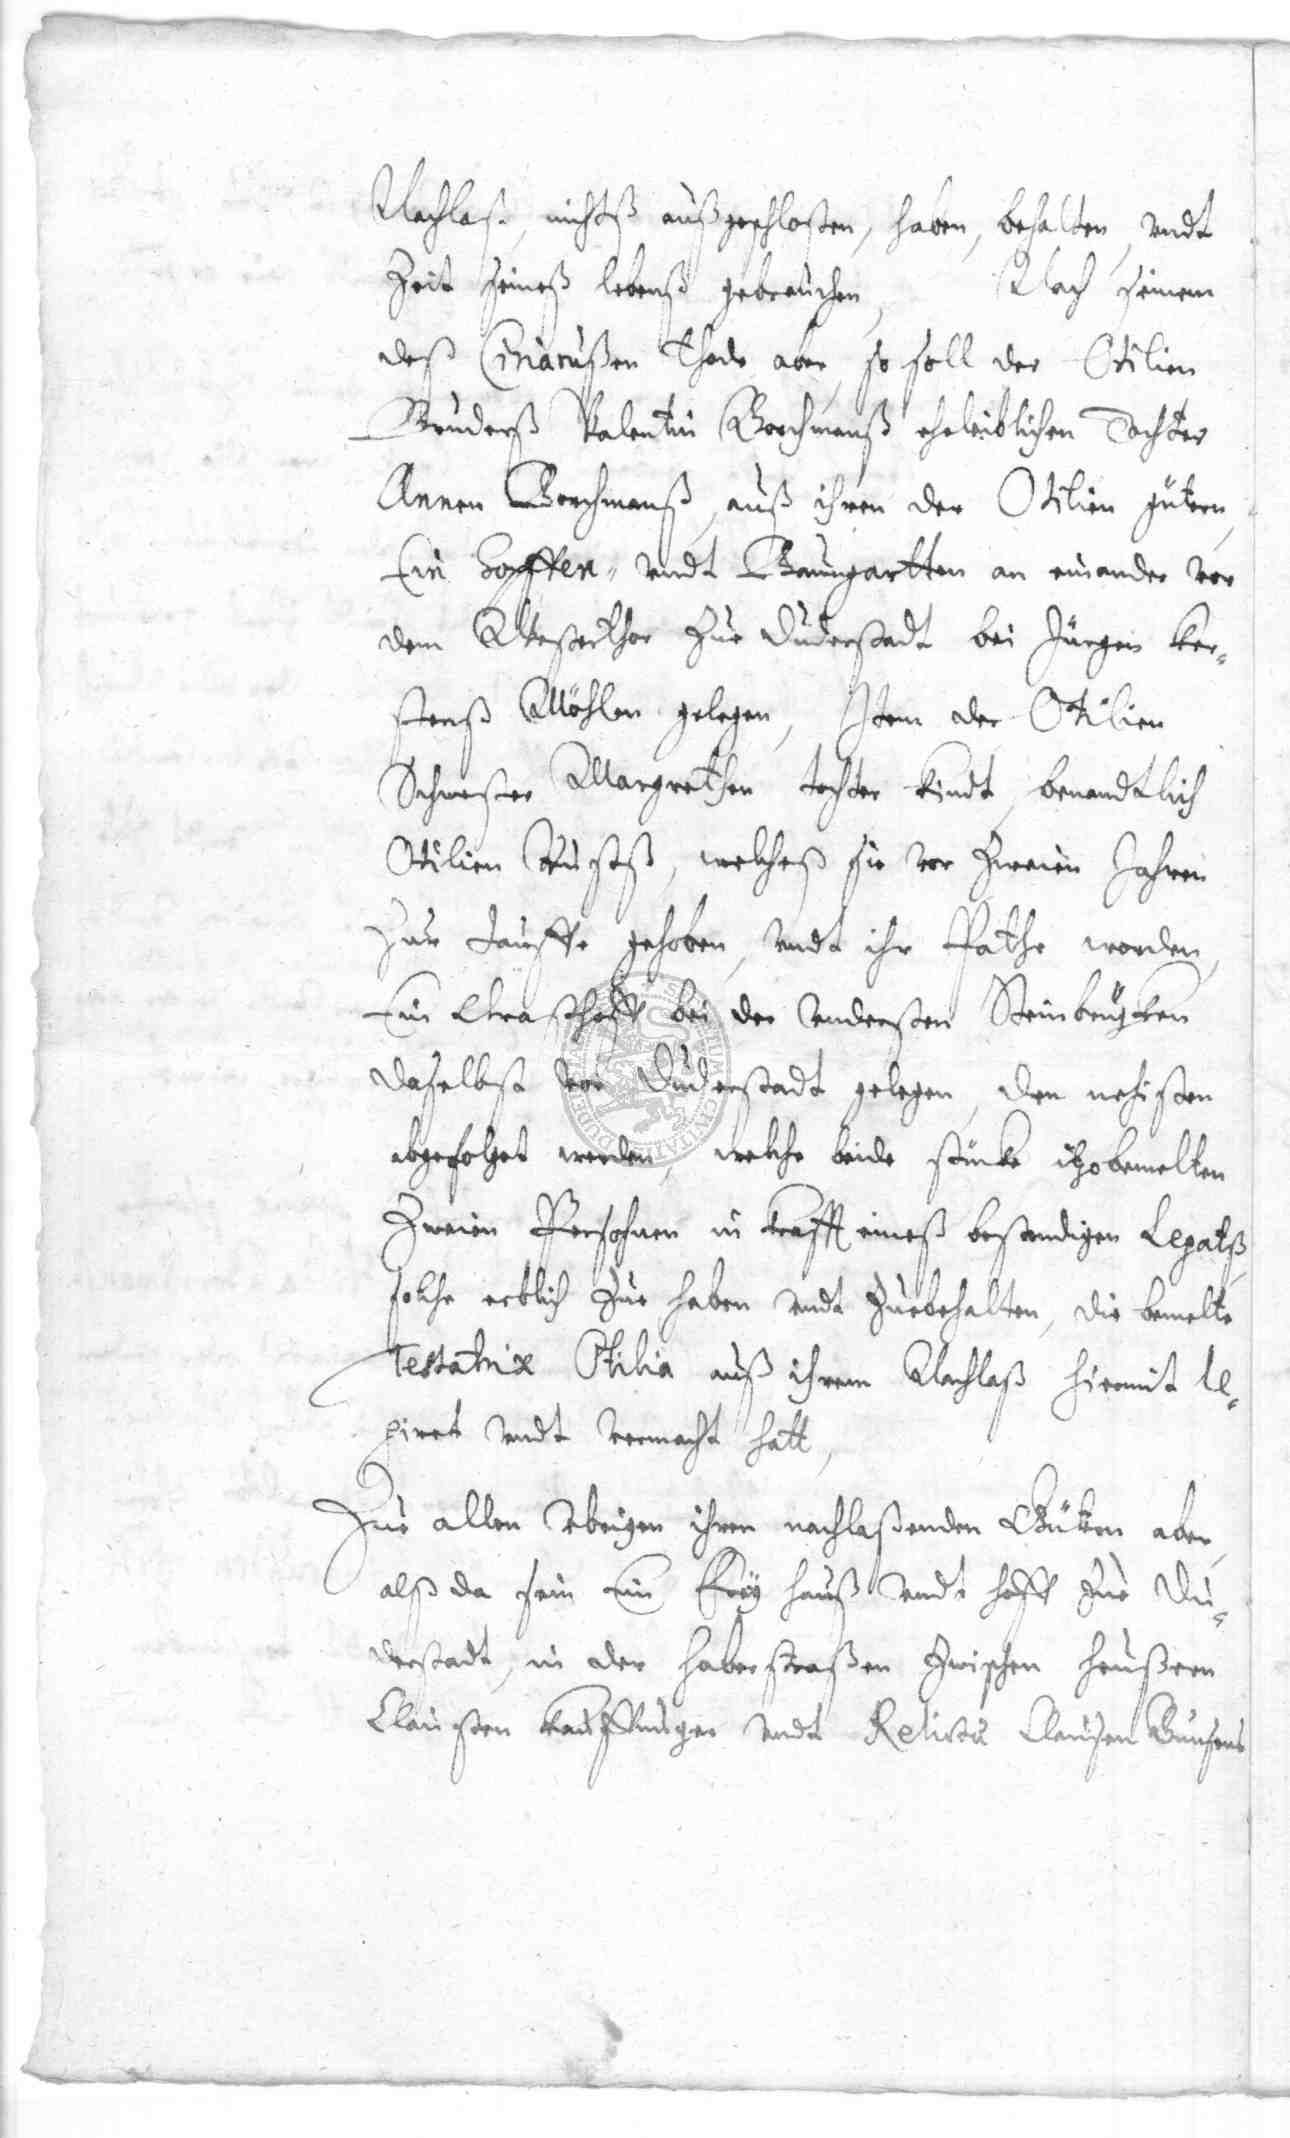 Nachlaß, nichtß außgeschloßen, haben, behalten, undt
Zeit seineß lebenß gebrauchen, Nach seinem
deß Ciriacußen Thode aber, so soll der Otilien
Bruderß Valentin Borchmanß eheleiblichen Tochter
Annen Borchmanß, auß ihren der Otilien gütern,
Ein Hopffen- undt Baumgartten an einander vor
dem Westerthor Zue Duderstadt bei Jürgen Ker-
stenß Möhlen gelegen, Item der Otilien
Schwester Margrethen tochter Kindt, benandtlich
Otilien, welcheß sie vor Zweien Jahren
Zur Tauffe gehoben, undt ihr Pathe worden,
Ein Graßhoff bei der understen Steinbrügken
daselbst vor Duderstadt gelegen, den nehisten
abgefolget werden, welche beide stücke itzobemelten
Zweien Persohnen in krafft eineß bestendigen Legatß
solche erblich Zue haben undt Zuebehalten, die bemelte
Testatrix Otilia auß ihrem Nachlaß hiermit le-
giret undt vermacht hatt,
Zue allen übrigen ihren nachlaßenden Gütern aber,
alß da sein Ein Frey hauß undt hoff Zue Du-
derstadt, in der haberstraßen Zwischen heußern
Claußen undt Relicta Claußen